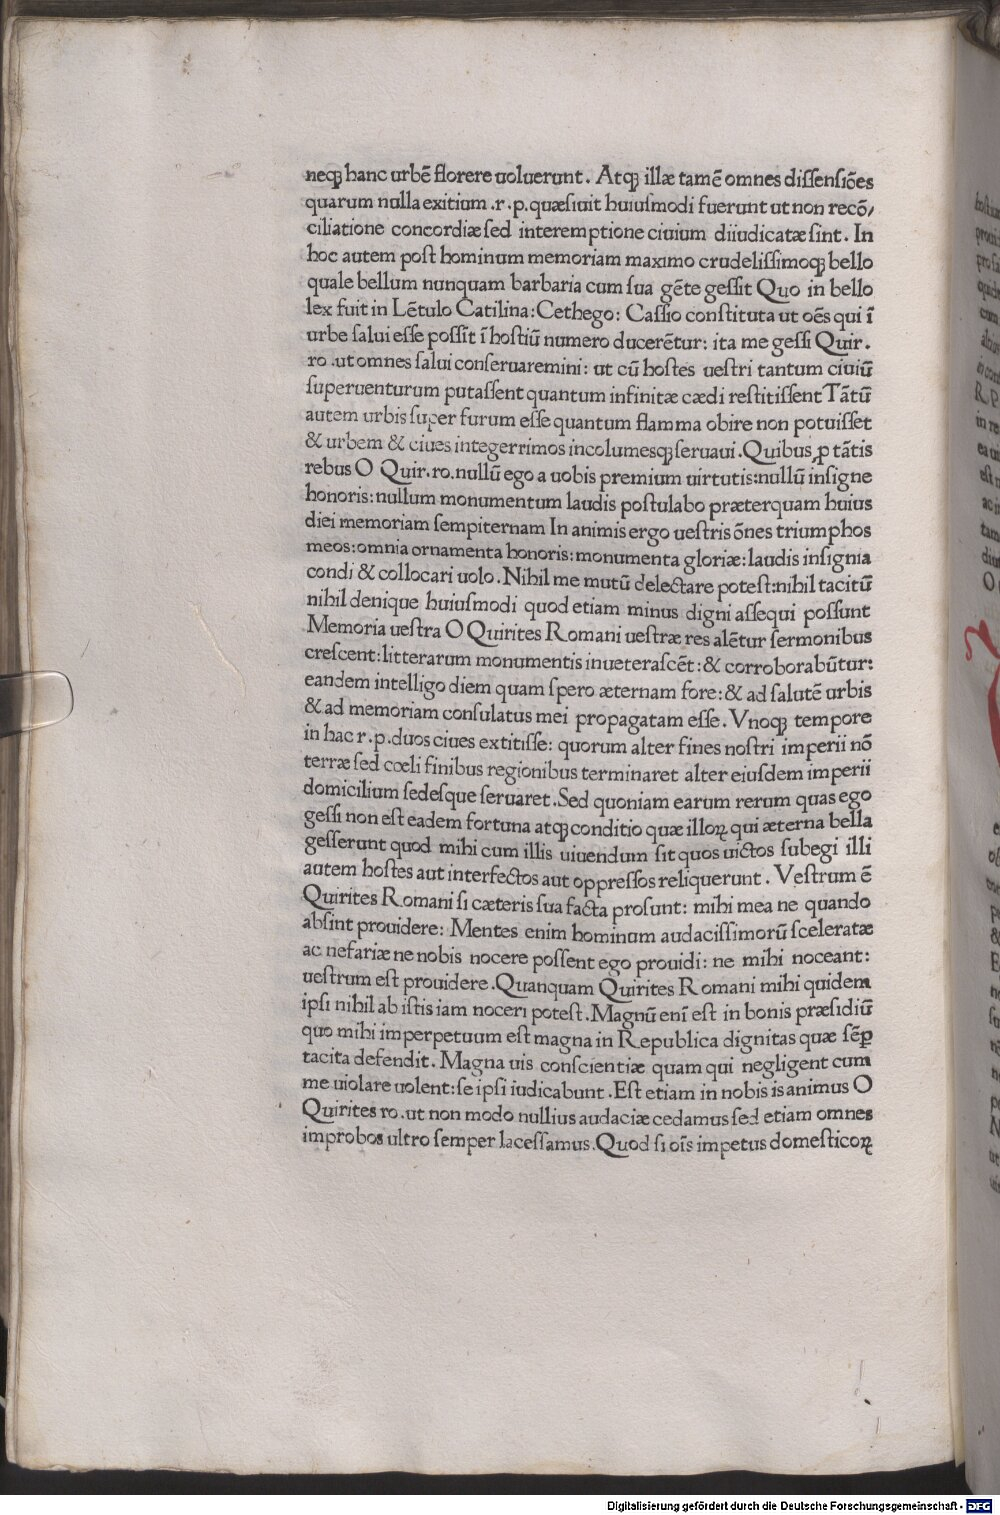 neqꝫ hanc urbē florere uoluerunt. Atqꝫ illæ tamē omnes diſſenſiōes
quarum nulla exitium .r.p. quæſiuit huiuſmodi fuerunt ut non recō/
ciliatione concordiæ ſed interemptione ciuium diiudicatæ ſint. In
hoc autem poſt hominum memoriam maximo crudeliſſimoqꝫ bello
quale bellum nunquam barbaria cum ſua gēte geſſit Quo in bello
lex fuit in Lētulo Catilina: Cethego: Caſſio conſtituta ut oēs qui ī
urbe ſalui eſſe poſſīt ī hoſtiū numero ducerētur: ita me geſſi Quir.
ro .ut omnes ſalui conſeruaremini: ut cū hoſtes ueſtri tantum ciuiū
ſuperuenturum putaſſent quantum infinitæ cædi reſtitiſſent Tātū
autem urbis ſuper furum eſſe quantum flamma obire non potuiſſet
& urbem & ciues integerrimos incolumesqꝫ ſeruaui. Quibus ꝓ tātis
rebus O Quir.ro. nullū ego a uobis premium uirtutis: nullū inſigne
honoris: nullum monumentum laudis poſtulabo præterquam huius
diei memoriam ſempiternam In animis ergo ueſtris ōnes triumphos
meos: omnia ornamenta honoris: monumenta gloriæ: laudis inſignia
condi & collocari uolo. Nihil me mutū delectare poteſt: nihil tacitū
nihil denique huiuſmodi quod etiam minus digni aſſequi poſſunt
Memoria ueſtra O Quirites Romani ueſtræ res alētur ſermonibus
creſcent: litterarum monumentis inueteraſcēt: & corroborabūtur:
eandem intelligo diem quam ſpero æternam fore: & ad ſalutē urbis
& ad memoriam conſulatus mei propagatam eſſe. Vnoqꝫ tempore
in hac r.p. duos ciues extitiſſe: quorum alter fines noſtri imperii nō
terræ ſed cœli finibus regionibus terminaret alter eiuſdem imperii
domicilium ſedeſque ſeruaret. Sed quoniam earum rerum quas ego
geſſi non eſt eadem fortuna atqꝫ conditio quæ illoꝝ qui æterna bella
geſſerunt quod mihi cum illis uiuendum ſit quos uictos ſubegi illi
autem hoſtes aut interfectos aut oppreſſos reliquerunt. Veſtrum ē
Quirites Romani ſi cæteris ſua facta proſunt: mihi mea ne quando
abſint prouidere: Mentes enim hominum audaciſſimorū ſceleratæ
ac nefariæ ne nobis nocere poſſent ego prouidi: ne mihi noceant:
ueſtrum eſt prouidere. Quanquam Quirites Romani mihi quidem
ipſi nihil ab iſtis iam noceri poteſt. Magnū enī eſt in bonis præſidiū
quo mihi imperpetuum eſt magna in Republica dignitas quæ ſēꝑ
tacita defendit. Magna uis conſcientiæ quam qui negligent cum
me uiolare uolent: ſe ipſi iudicabunt. Eſt etiam in nobis is animus O
Quirites ro. ut non modo nullius audaciæ cedamus ſed etiam omnes
improbos ultro ſemper laceſſamus. Quod ſi oīs impetus domeſticoꝝ
Digitalisierung gefördert durch die Deutsche Forschungsgemeinschaft - DFG